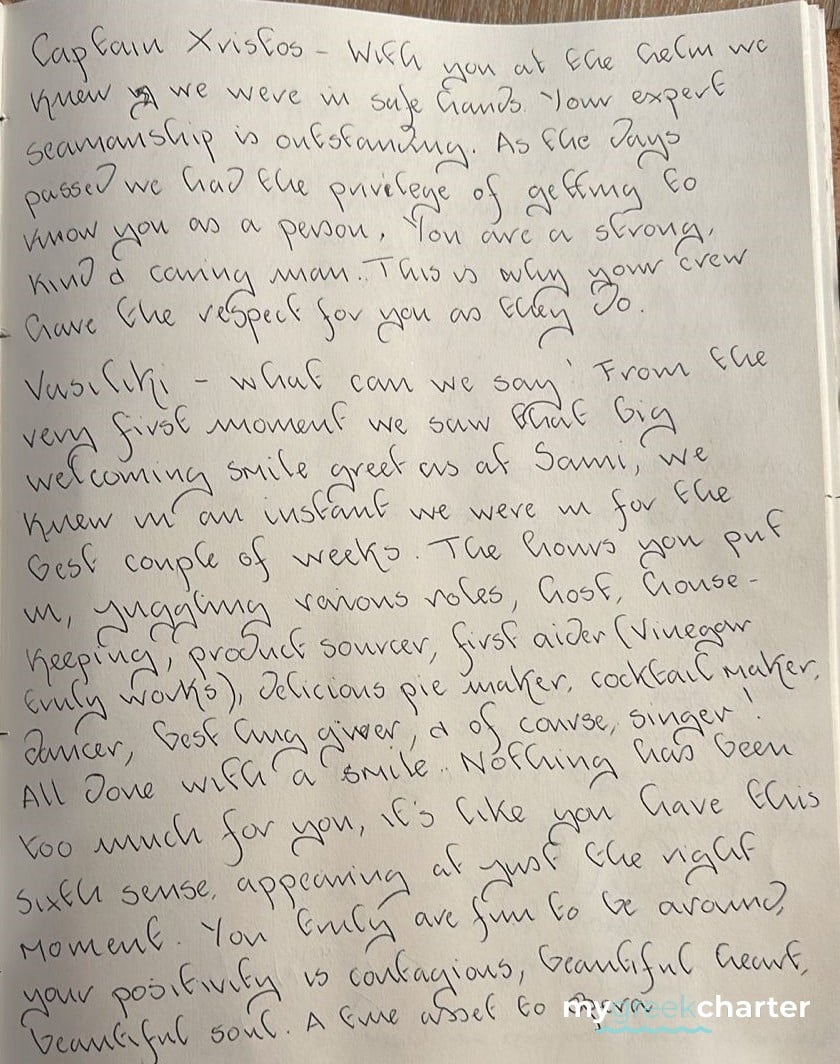 Captain Xristos - With you at the helm we
knew we were in safe hands. Your expert
seamanship is outstanding. As the days
passed we had the privilege of getting to
know you as a person. You are a strong,
kind & caring man. This is why your crew
have the respect for you as they do.
Vasiliki - what can we say! From the
very first moment we saw that big
welcoming smile greet us at Sami, we
knew in an instant we were in for the
best couple of weeks. The hours you put
in, juggling various roles, host, house-
keeping, product sourcer, first aider (vinegar
truly works), delicious pie maker, cocktail maker,
dancer, best hug giver, & of course, singer!
All done with a smile. Nothing has been
too much for you, it's like you have this
sixth sense, appearing at just the right
moment. You truly are fun to be around,
your positivity is contagious, beautiful heart,
beautiful soul. A true asset to
mygreekcharter